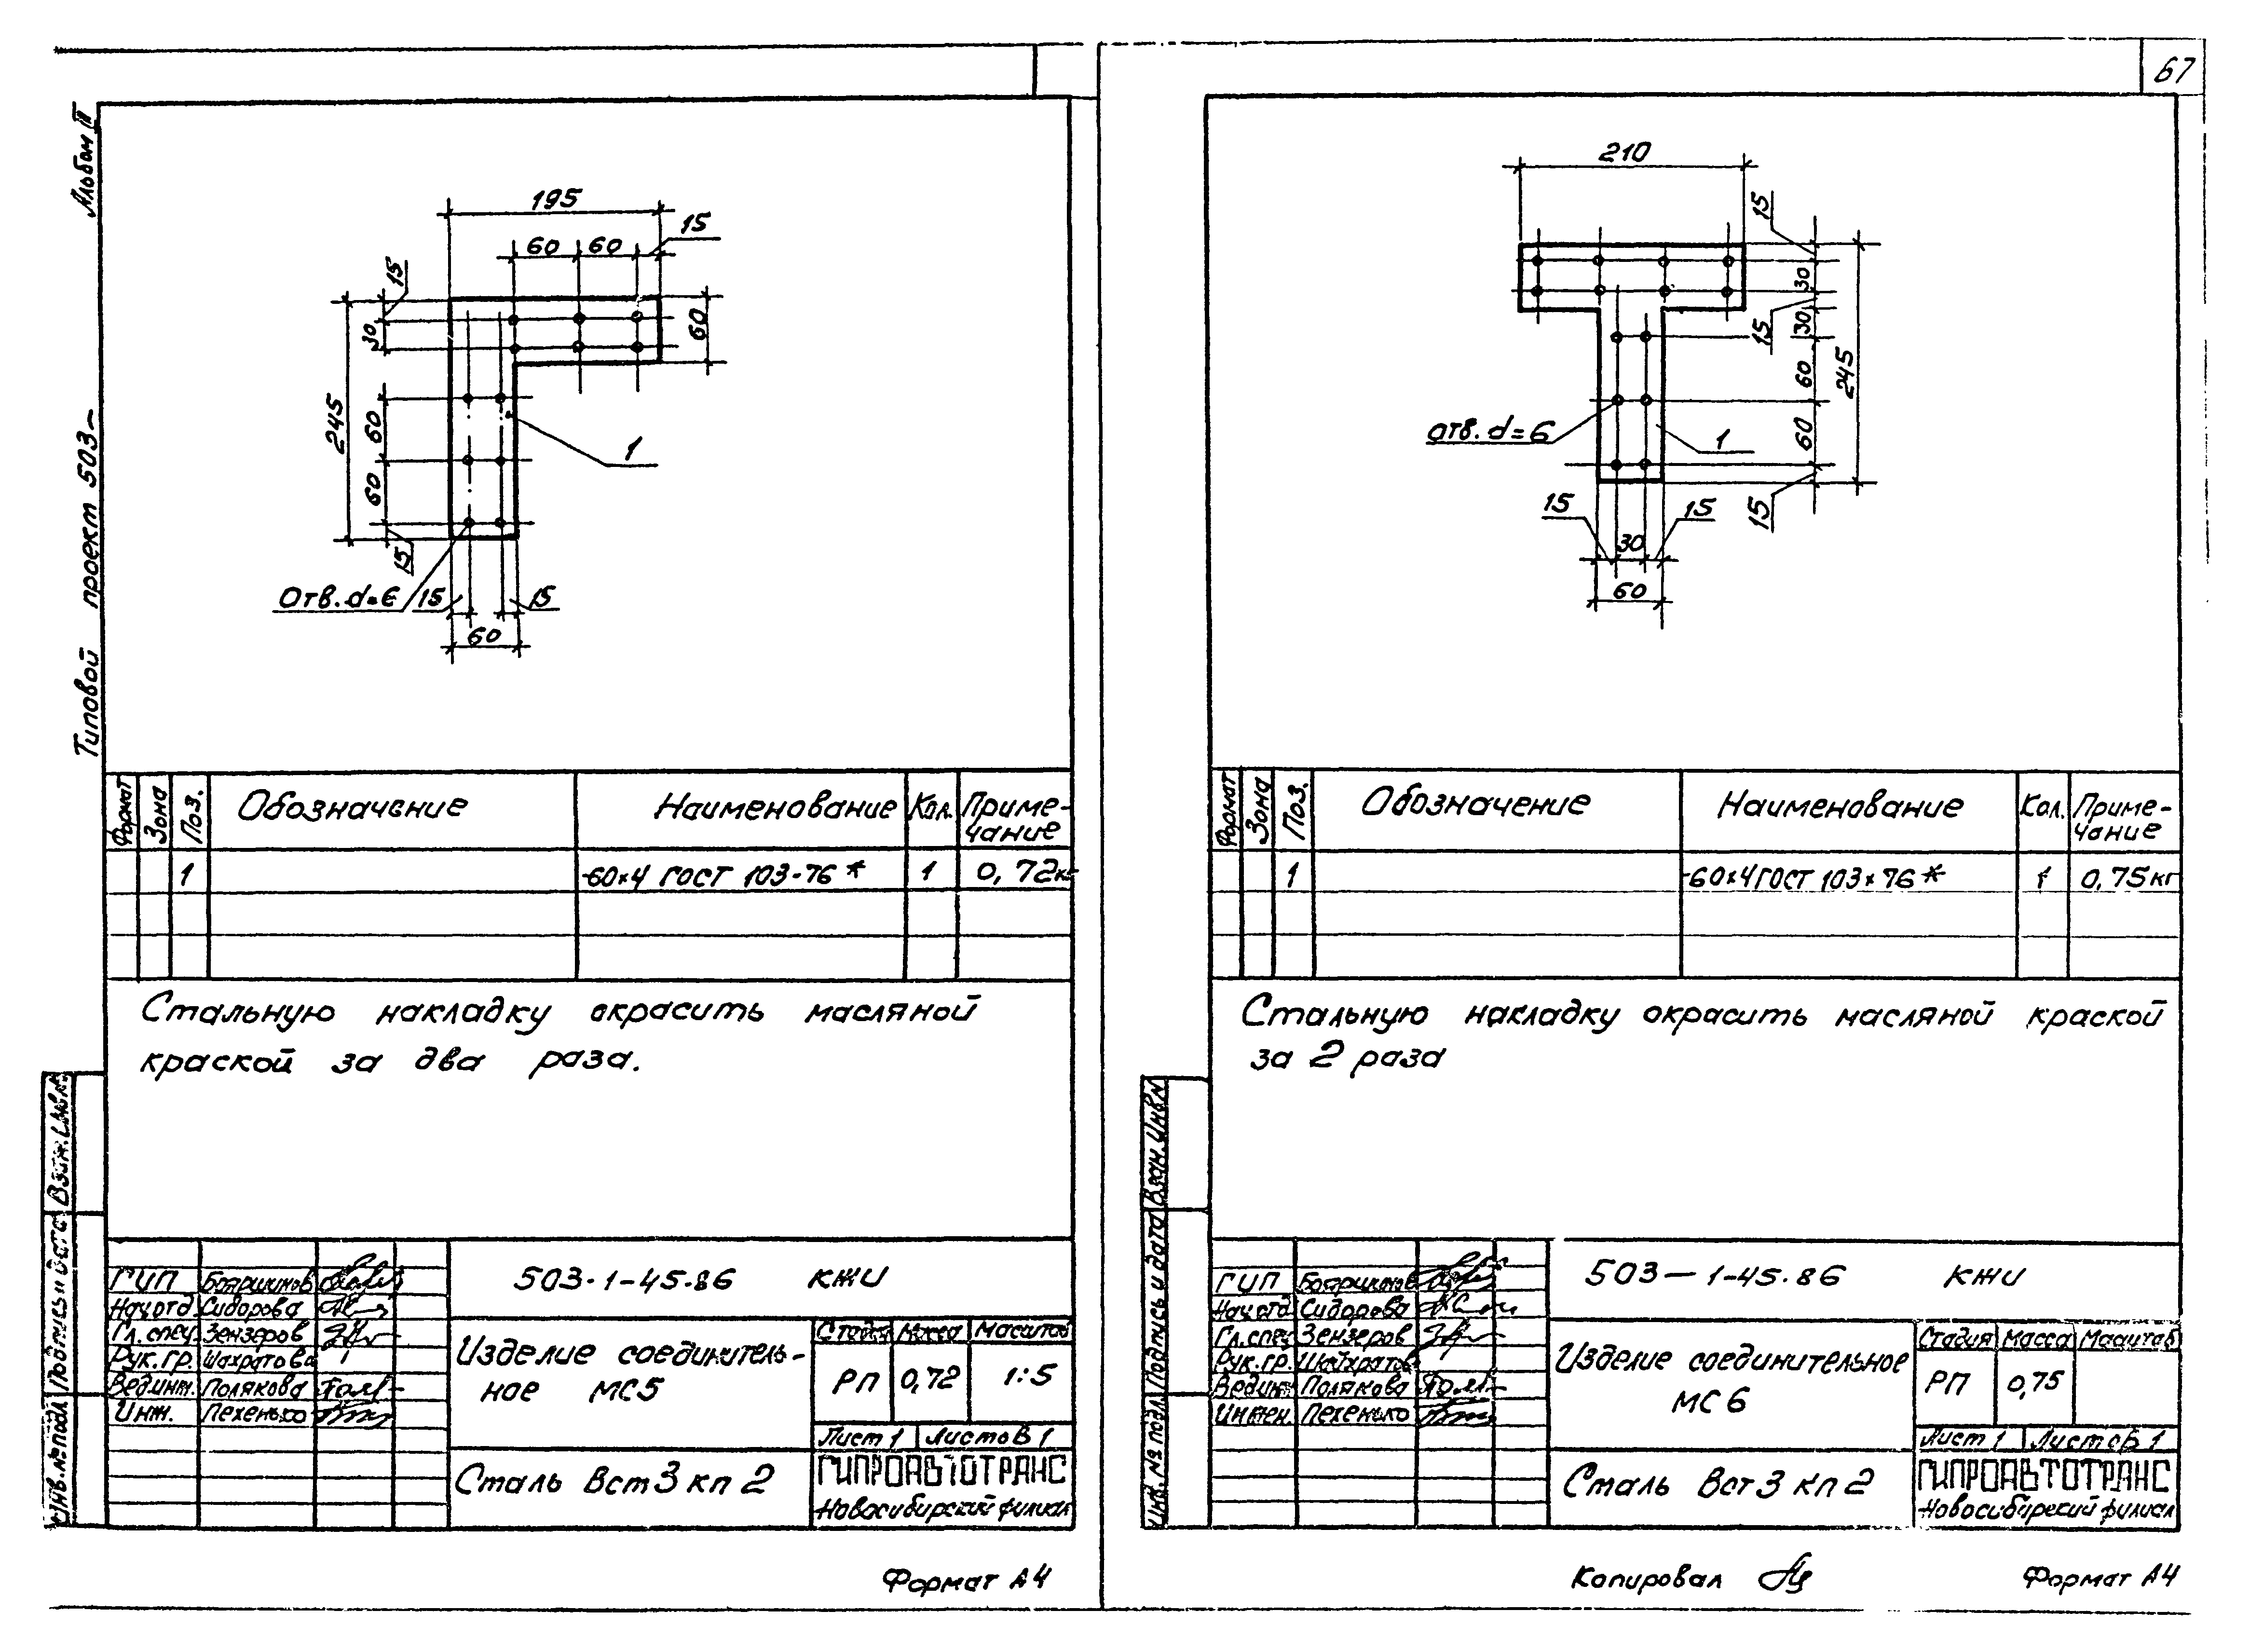 67
Альбом II
Типовой проект 503-
195
15
60 60
15
30
245
60
60
60
15
1
Отв. d=6
15
15
60
Формат
Зона
Поз.
Обозначение
Наименование
Кол.
Приме-
чание
1
-60×4 ГОСТ 103-76*
1
0,72кг
Стальную накладку окрасить масляной
краской за два раза.
Взам. инв. №
Подпись и дата
Инв. № подл
ГИП
Нач отд Сидорова
Гл. спец. Зензеров
Рук. гр.
Вед инж. Полякова
Инж. Пехенько
503-1-45.86 КЖИ
Изделие соединитель-
ное МС5
Стадия Масса Масштаб
РП 0,72 1:5
Лист 1 Листов 1
Сталь Вст 3 кп 2
ГИПРОАВТОТРАНС
Новосибирский филиал
Формат А4
210
15
30
15
30
60
60
15
245
отв. d=6
1
15
15
30
60
Формат
Зона
Поз.
Обозначение
Наименование
Кол.
Приме-
чание
1
-60×4 ГОСТ 103×76*
1
0,75кг
Стальную накладку окрасить масляной краской
за 2 раза
Взам. инв №
Подпись и дата
Инв. № подл.
ГИП
Нач отд Сидорова
Гл. спец Зензеров
Рук. гр.
Вед инж Полякова
Инжен. Пехенько
503-1-45.86 КЖИ
Изделие соединительное
МС 6
Стадия Масса Масштаб
РП 0,75
Лист 1 Листов 1
Сталь Вст 3 кп 2
ГИПРОАВТОТРАНС
Новосибирский филиал
Копировал
Формат А4